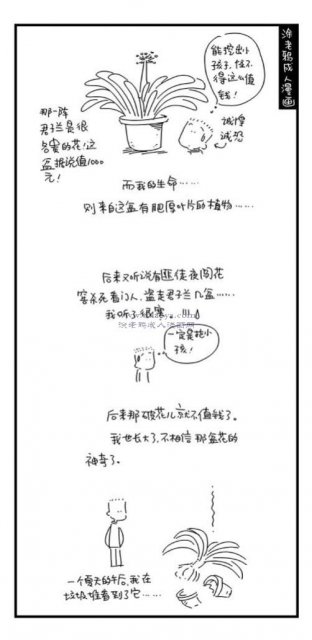 涂老鸦成人漫画
能挖出小
孩子,怪不
得这么值
钱!
那一阵
君子兰是很
名贵的花!这
盆据说值1000
元!
惶惶
诚恐
而我的生命……
则来自这盆有肥厚叶片的植物……
后来又听说有匪徒夜闯花
窖杀死看门人,盗走君子兰几盆……
我听了很害
涂老鸦成人漫画网
一定是挖小
孩!
后来那破花儿就不值钱了。
我也长大了,不相信那盆花的
神奇了。
一个夏天的午后,我在
垃圾堆看到了它……